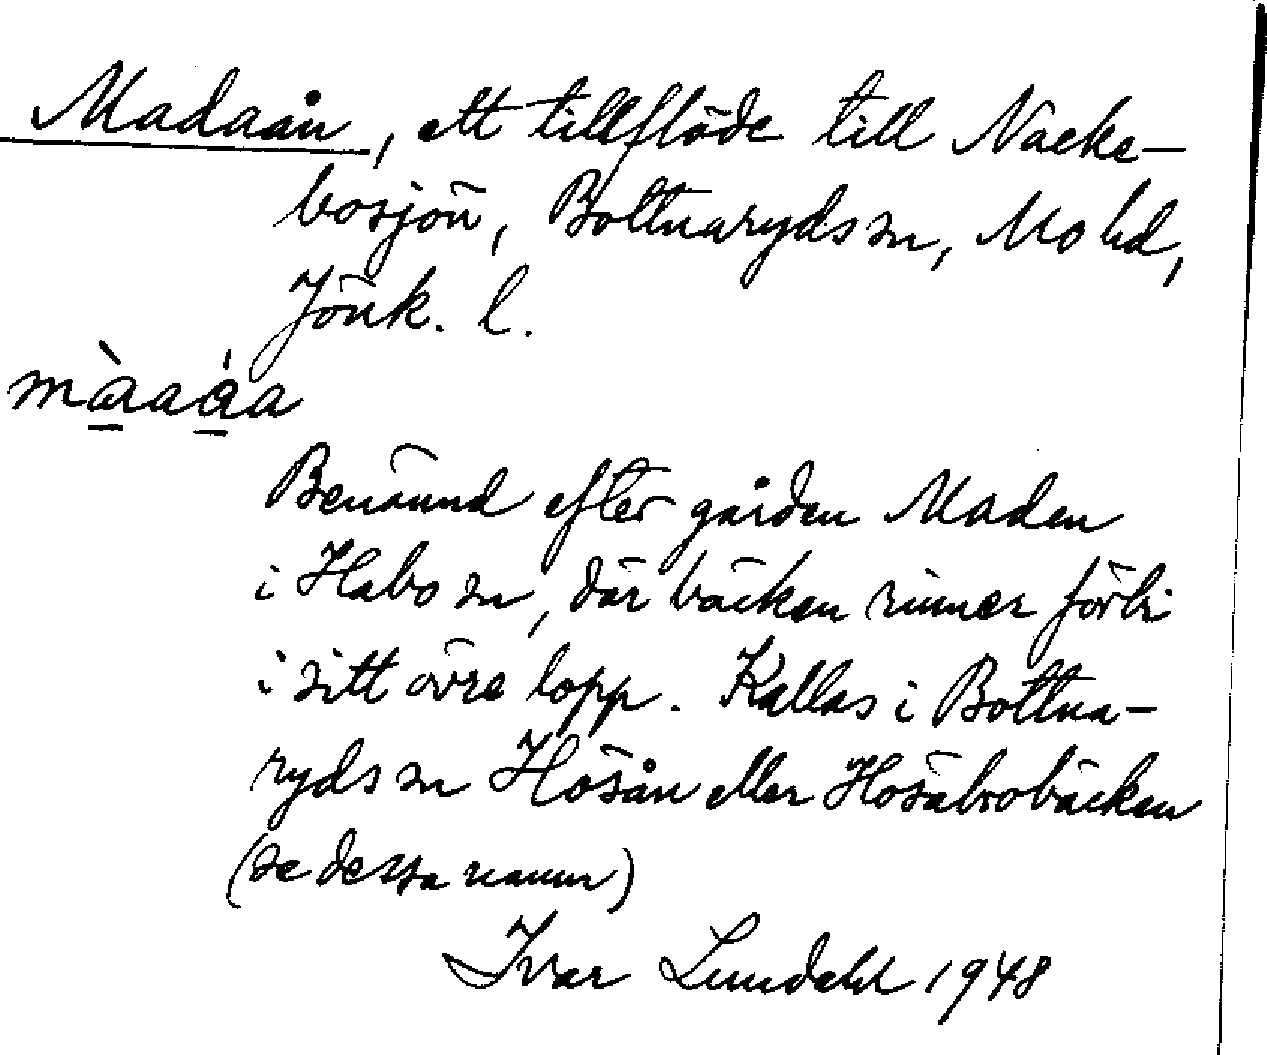 Madaån, ett tillflöde till Nacke-
bosjön, Bottnaryds sn, Mo hd,
Jönk. l.
Benämnd efter gården Maden
i Habo sn, där bäcken rinner förbi
i sitt övre lopp. Kallas i Bottna-
ryds sn Hösån eller Hösabrobäcken
(se dessa namn)
Ivar Lundahl 1948